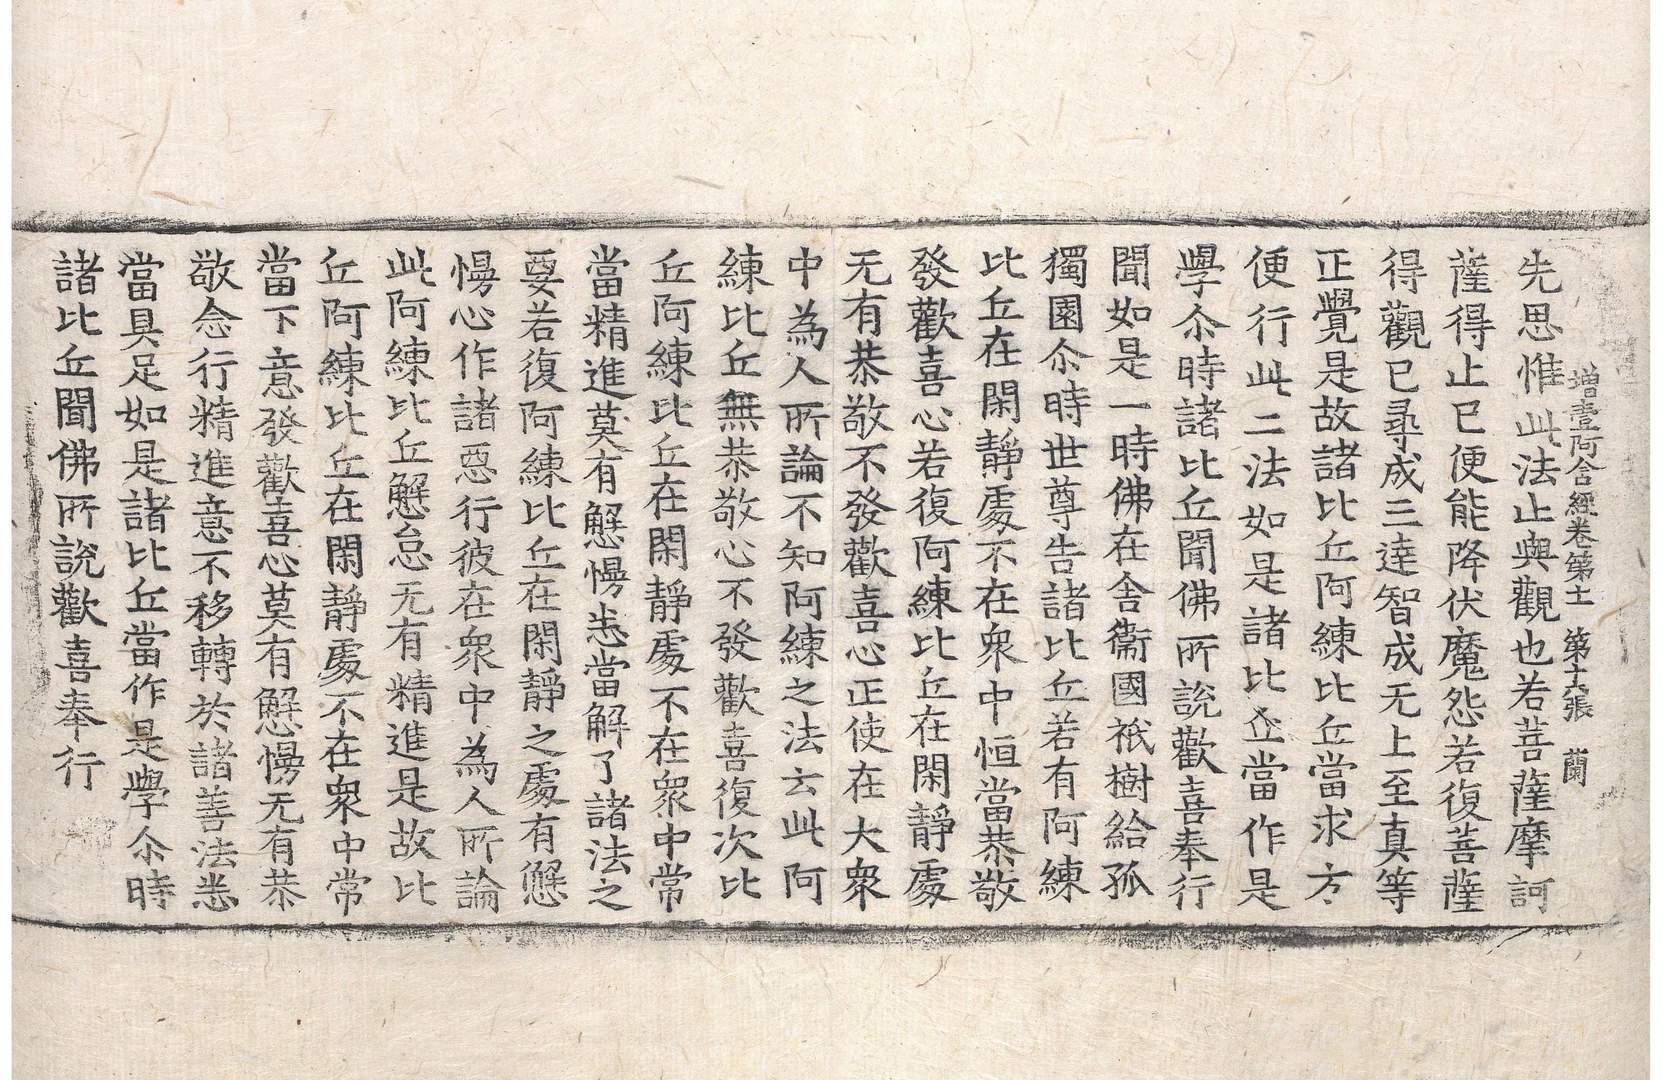 增壹阿含經卷第十一 第十六張 蘭
先思惟此法止與觀也若菩薩摩訶
薩得止已便能降伏魔怨若復菩薩
得觀已尋成三達智成无上至真等
正覺是故諸比丘阿練比丘當求方
便行此二法如是諸比丘當作是
學尒時諸比丘聞佛所說歡喜奉行
聞如是一時佛在舍衞國祇樹給孤
獨園尒時世尊告諸比丘若有阿練
比丘在閑靜處不在衆中恒當恭敬
發歡喜心若復阿練比丘在閑靜處
无有恭敬不發歡喜心正使在大衆
中為人所論不知阿練之法云此阿
練比丘無恭敬心不發歡喜復次比
丘阿練比丘在閑靜處不在衆中常
當精進莫有懈慢悉當解了諸法之
要若復阿練比丘在閑靜之處有懈
慢心作諸惡行彼在衆中為人所論
此阿練比丘懈怠无有精進是故比
丘阿練比丘在閑靜處不在衆中常
當下意發歡喜心莫有懈慢无有恭
敬念行精進意不移轉於諸善法悉
當具足如是諸比丘當作是學尒時
諸比丘聞佛所說歡喜奉行